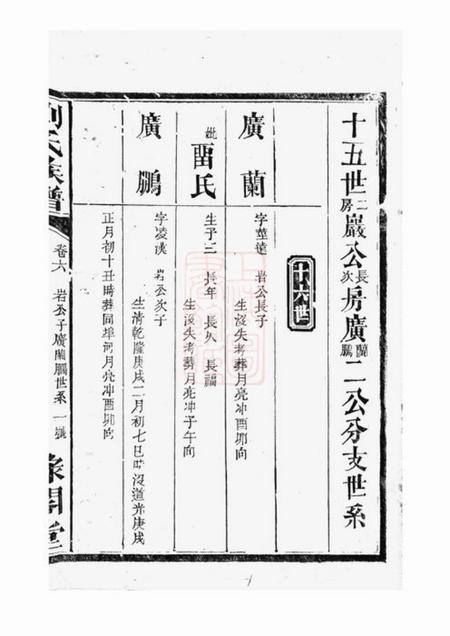 十五世二房巖公長次房廣蘭鵬二公分支世系
十六世
廣蘭
字莖遠 岩公長子
生沒失考葬月亮冲酉卯向
妣
留氏
生子三 長年 長久 長福
生沒失考葬月亮冲子午向
廣鵬
字凌漢 岩公次子
生清乾隆庚戌二月初七巳時沒道光庚戌
正月初十丑時葬同埠河月亮冲酉卯向
劉氏族譜
卷六 岩公子廣蘭鵬世系 一號
閣堂